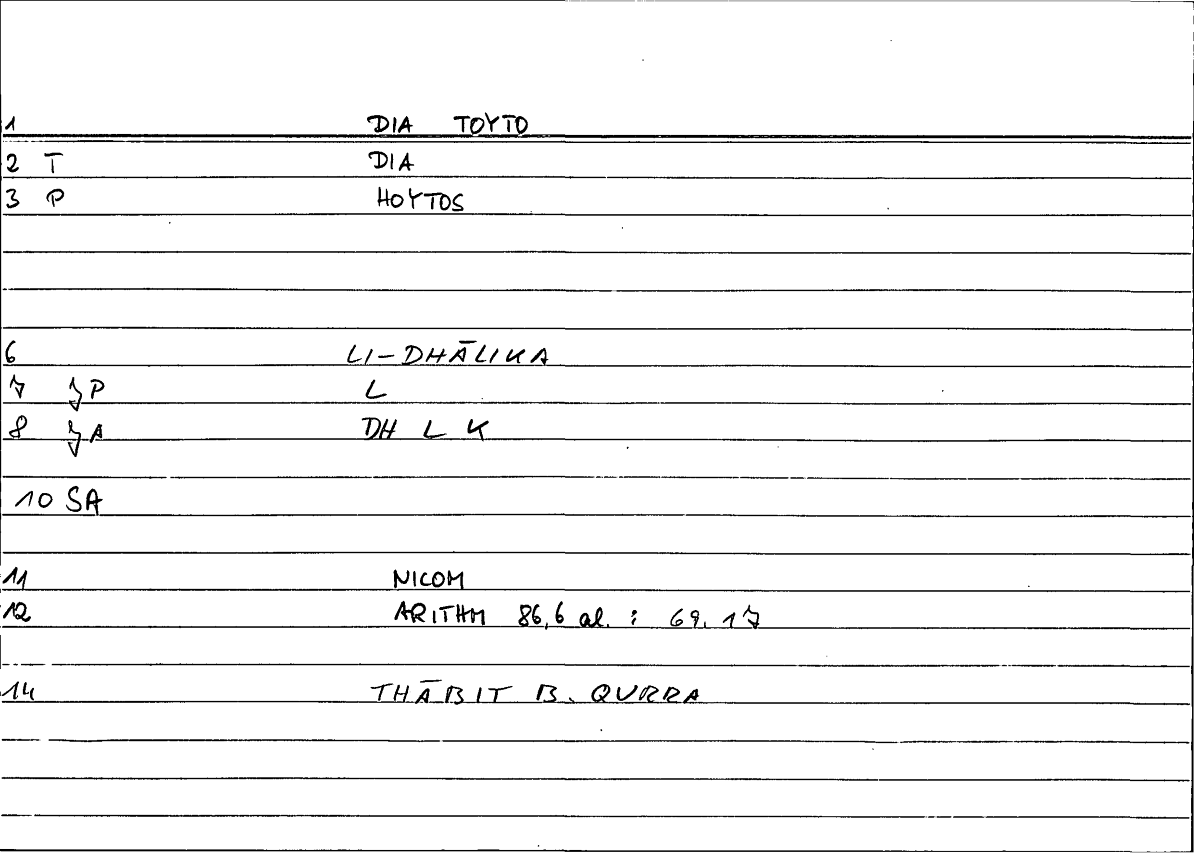 1 DIA TOYTO
2 T DIA
3 P HOYTOS
6 LI-DHĀLIKA
7 P L
8 A DH L K
10 SA
11 NICOM
12 ARITHM 86,6 al. : 69.17
14 THĀBIT B. QURRA